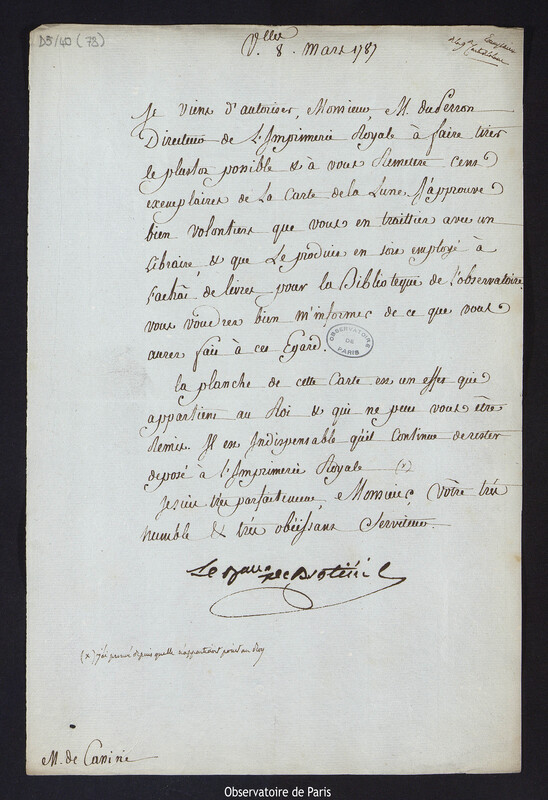 D5/40 (73)
V.lles 8. Mars 1787
Je viens d'autoriser, Monsieur, M. duPerron
Directeur de L'Imprimerie Royale à faire tirer
le plustot possible & à vous Remettre cent
exemplaires de La Carte de la Lune. J'approuve
bien volontiers que vous en traittiez avec un
Libraire, & que Le produit en soit employé à
l'achat de livres pour la Biblioteque de l'observatoire
vous voudrez bien m'informer de ce que vous
aurez fait à cet Egard.
OBSERVATOIRE DE PARIS
la planche de cette Carte est un effet qui
appartient au Roi & qui ne peut vous être
Remis. Il est Indispensable qu'il Continue de rester
deposé à l'Imprimerie Royale (x)
Je suis très parfaitement, Monsieur, Vôtre très
humble & très obéissant Serviteur.
Le Baron de Breteüil
(x) j'ai prouvé depuis qu'elle n'appartenoit point au Roy
M. de Cassini
Observatoire de Paris